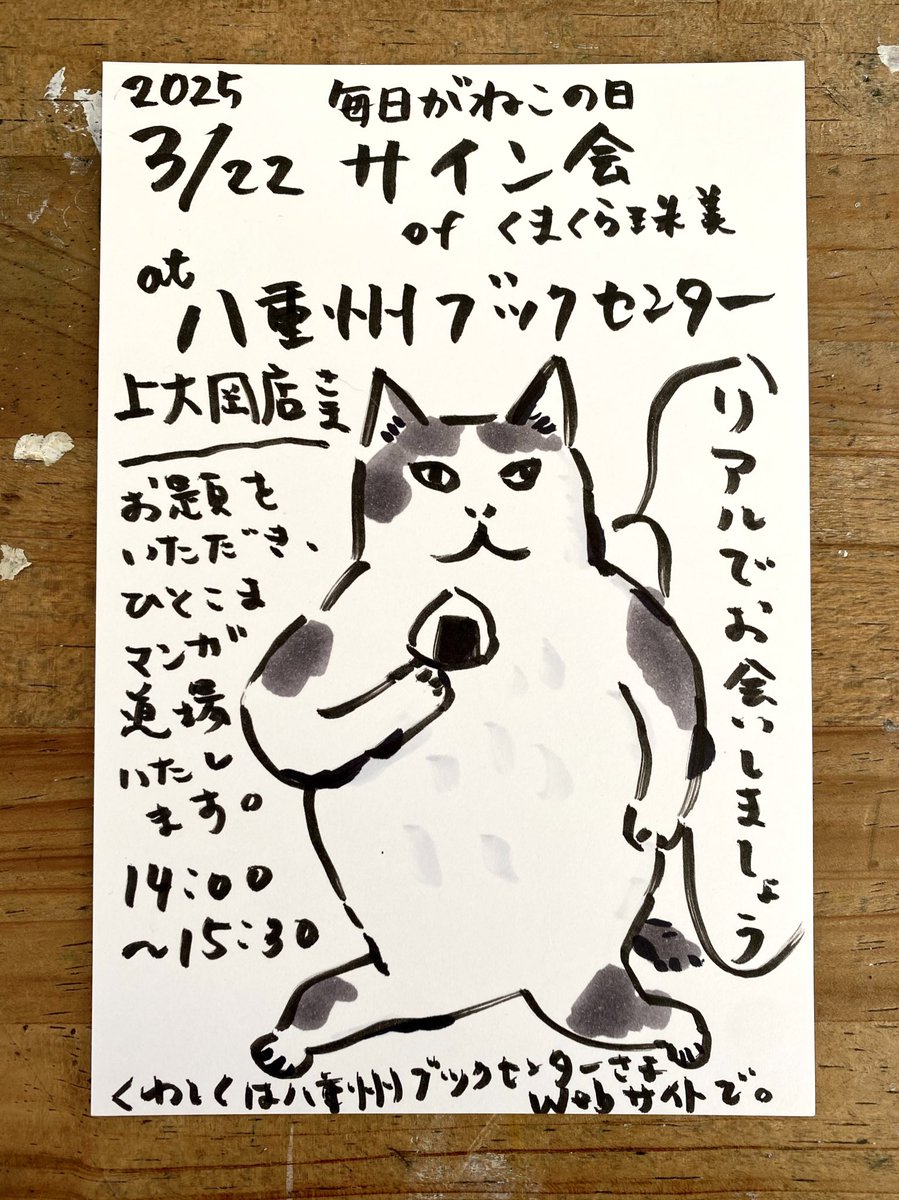 2025
3/22
毎日がねこの日
サイン会
of くまくら珠美
at
八重州ブックセンター
上大岡店さま
お題を
いただき、
ひとこま
マンガ
道場
いたし
ます。
14:00
～15:30
リアルでお会いしましょう
くわしくは八重州ブックセンターさま
Webサイトで。